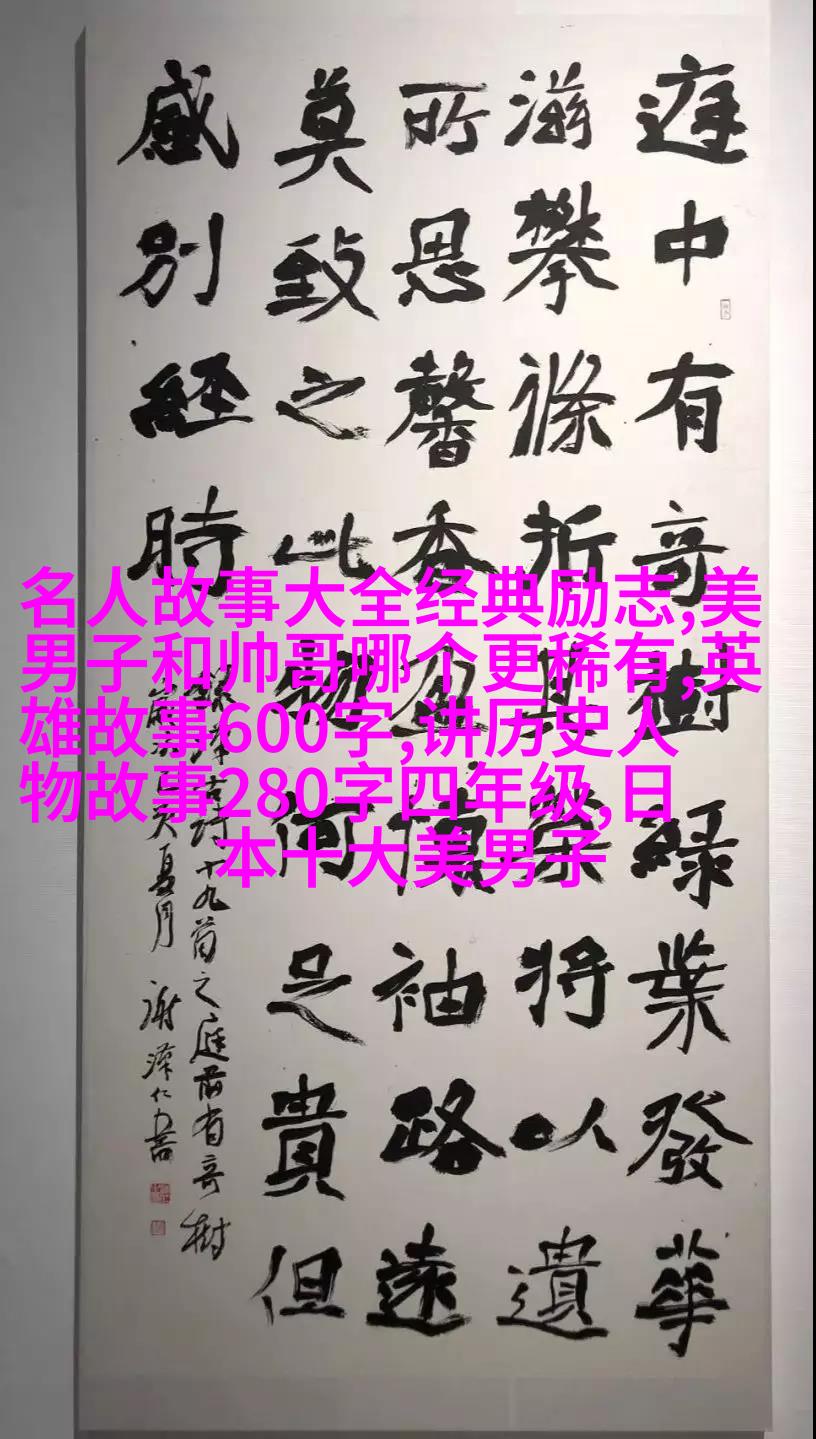 庭中有奇樹緑葉發華
滋攀條折其榮將以遺
所思馨香盈懷袖路遠
莫致之此物何足貴但
感別經時
古詩十九首之庭前有奇樹
亥夏月 謝澤仁書
名人故事大全经典励志,美
男子和帅哥哪个更稀有,英
雄故事600字,讲历史人
物故事280字四年级,日
本十大美男子